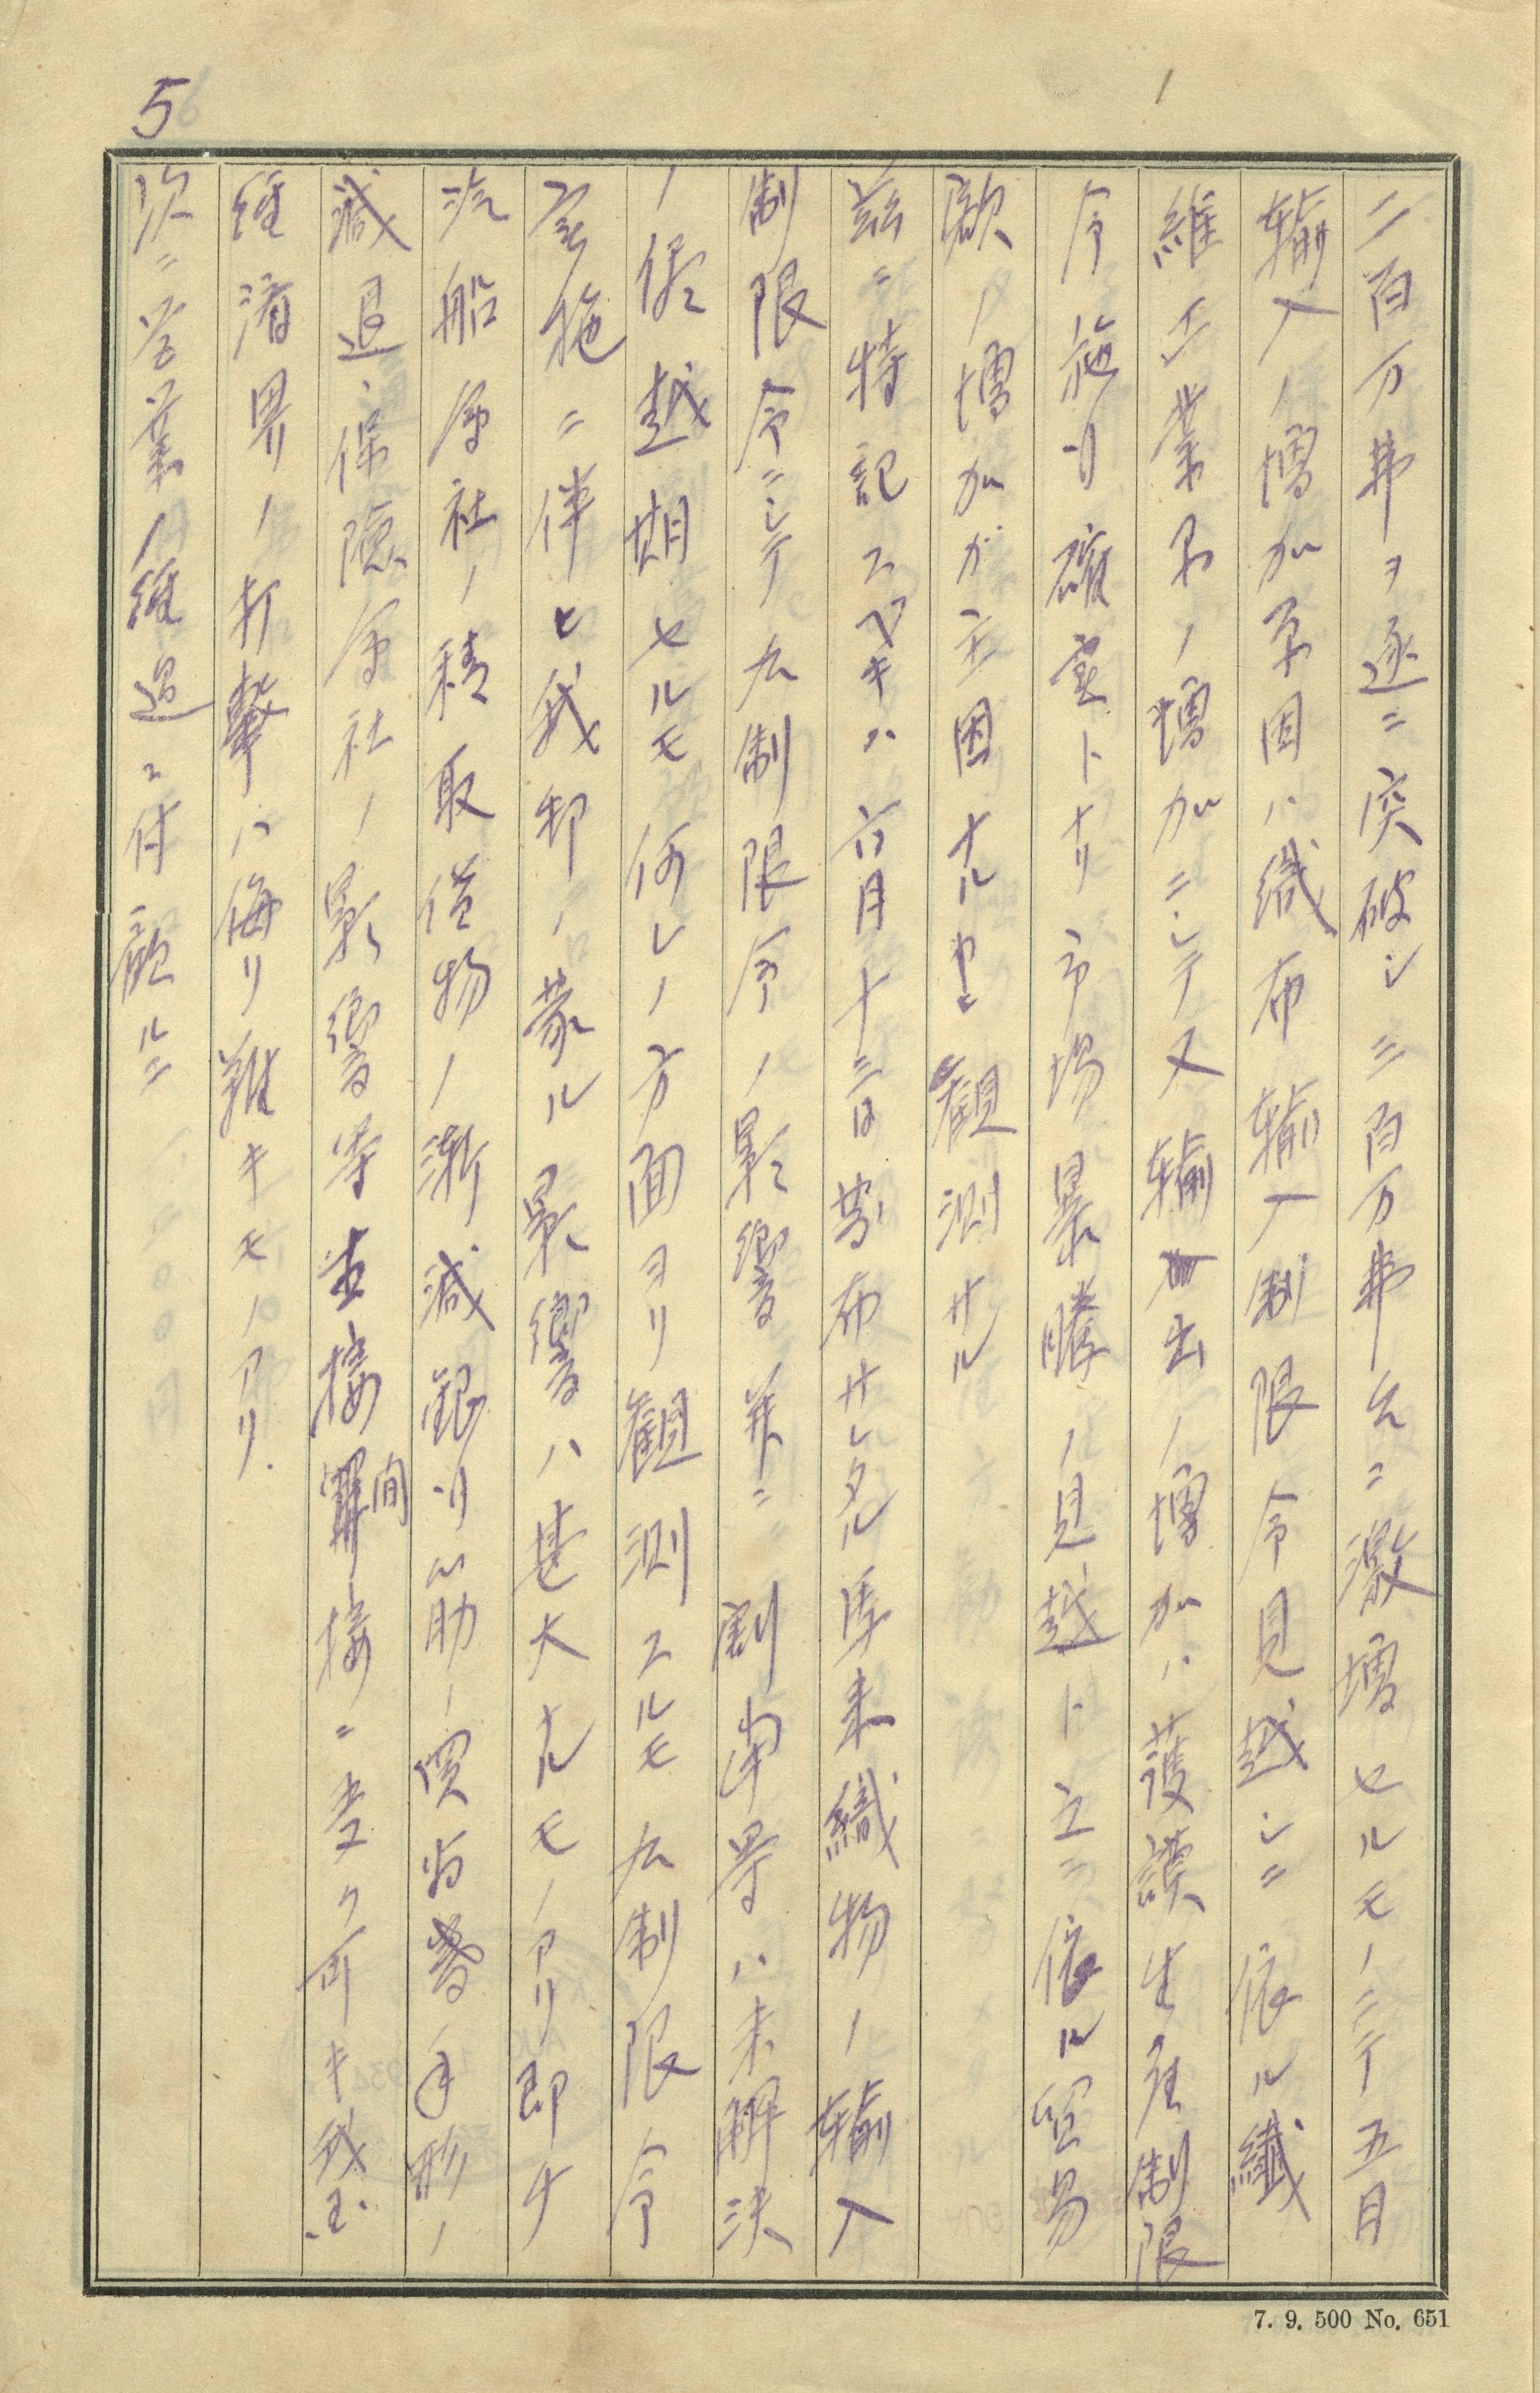 5
二百万弗ヲ逐ニ突破シ三百万弗台ニ激増セルモノニテ五月
輸入ノ増加原因ハ織布輸入制限令見越シニ依ル繊
維工業品ノ増加ニシテ又輸出ノ増加ハ護謨生産制限
令施行確定トナリ市場暴騰ノ見越ト立ニ依ル貿易
額ノ増加ガ主因ナルヤニ観測サル
茲ニ特記スベキハ六月十三日発布サレタル馬来織物ノ輸入
制限令ニシテ本制限令ノ影響並ニ割当等ハ未解決
ノ儘越期セルモ何レノ方面ヨリ観測スルモ本制限令
実施ニ伴ヒ我邦ノ蒙ル影響ハ甚大ナルモノアリ即チ
汽船会社ノ積取貨物ノ漸減銀行筋ノ買為替手形ノ
減退、保険会社ノ影響等直接間接ニ受ク可キ我
経済界ノ打撃ハ侮リ難キモノアリ.
次ニ営業ノ経過ニ付顧ルニ
7. 9. 500 No. 651